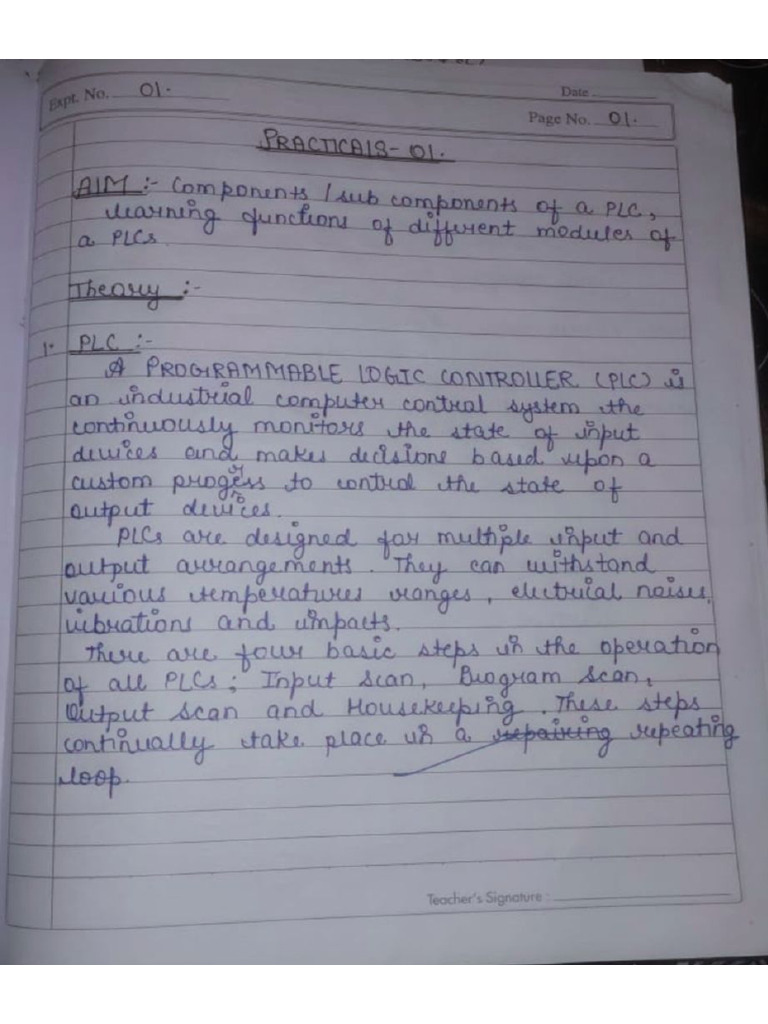 Expt. No. 01.
Date
Page No. 01.
PRACTICALS-01.
AIM :- Components / sub components of a PLC,
learning functions of different modules of
a PLCs.
Theory :-
1. PLC :-
A PROGRAMMABLE LOGIC CONTROLLER (PLC) is
an industrial computer control system the
continuously monitors the state of input
devices and makes decisions based upon a
custom to control the state of
output devices.
PLCs are designed for multiple input and
output arrangements. They can withstand
various temperatures ranges, electrical noises,
vibrations and impacts.
There are four basic steps in the operation
of all PLCs; Input Scan, Program Scan,
Output Scan and Housekeeping. These steps
continually take place in a repairing repeating
loop.
Teacher's Signature :